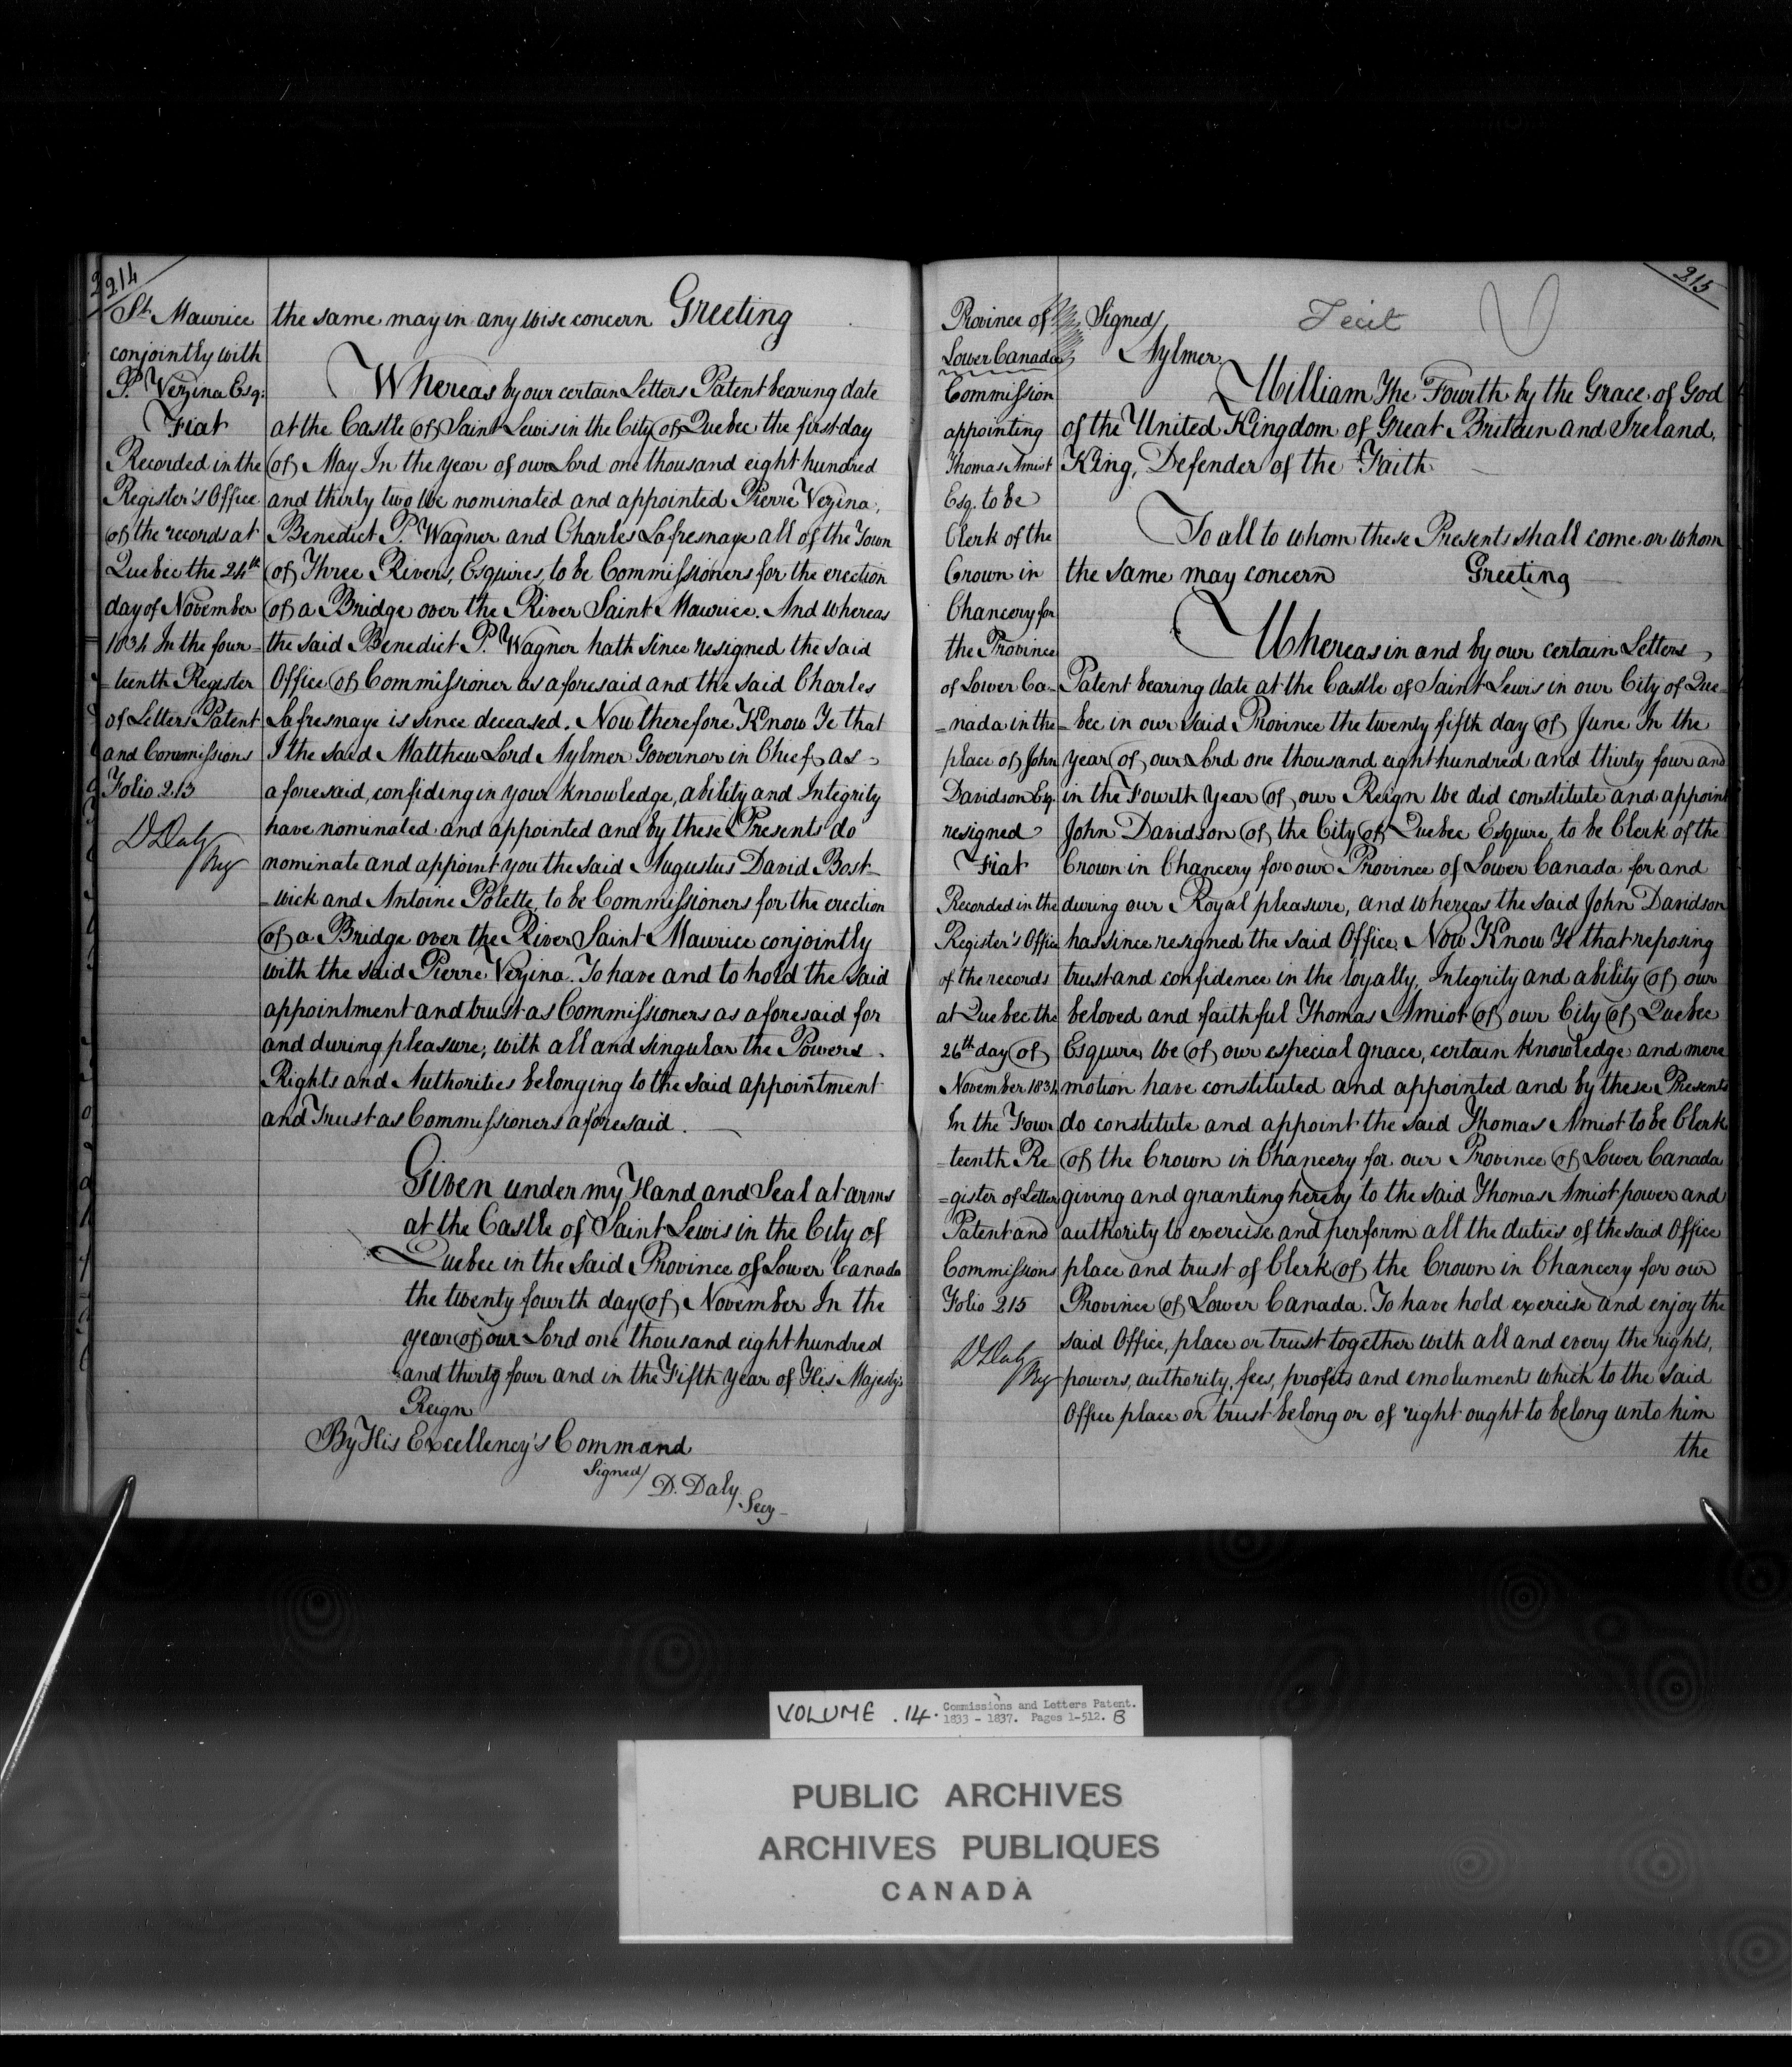 214
St. Maurice
conjointly with
P. Vezina Esq:
Fiat
Recorded in the
Register's Office
of the records at
Quebec the 24th
day of November
1834 In the four=
=teenth Register
of Letters Patent
and Commissions
Folio 213
D Daly
Reg
the same may in any wise concern Greeting
Whereas by our certain Letters Patent bearing date
at the Castle of Saint Lewis in the City of Quebec the first day
of May In the year of our Lord one thousand eight hundred
and thirty two We nominated and appointed Pierre Vezina,
Benedict P. Wagner and Charles Lafresnaye all of the Town
of Three Rivers, Esquires, to be Commissioners for the erection
of a Bridge over the River Saint Maurice. And whereas
the said Benedict P. Wagner hath since resigned the said
Office of Commissioner as aforesaid and the said Charles
Lafresnaye is since deceased. Now therefore Know Ye that
I the said Matthew Lord Aylmer Governor in Chief as
aforesaid, confiding in your knowledge, ability and Integrity
have nominated and appointed and by these Presents do
nominate and appoint you the said Augustus David Bost=
=wick and Antoine Polette, to be Commissioners for the erection
of a Bridge over the River Saint Maurice conjointly
with the said Pierre Vezina. To have and to hold the said
appointment and trust as Commissioners as aforesaid for
and during pleasure, with all and singular the Powers
Rights and Authorities belonging to the said appointment
and Trust as Commissioners aforesaid.
Given under my Hand and Seal at arms
at the Castle of Saint Lewis in the City of
Quebec in the said Province of Lower Canada
the twenty fourth day of November In the
year of our Lord one thousand eight hundred
and thirty four and in the Fifth year of His Majesty's
Reign
By His Excellency's Command
Signed/ D. Daly
Secy
215
Province of
Lower Canada
Commission
appointing
Thomas Amiot
Esq. to be
Clerk of the
Crown in
Chancery for
the Province
of Lower Ca=
=nada in the
place of John
Davidson Esq.
resigned
Fiat
Recorded in the
Register's Office
of the records
at Quebec the
26th day of
November 1834
In the Four
teenth Re
=gister of Letter
Patent and
Commissions
Folio 215
D Daly
Reg
Signed/
Aylmer
William The Fourth by the Grace of God
of the United Kingdom of Great Britain and Ireland,
King, Defender of the Faith
To all to whom these Presents shall come or whom
the same may concern Greeting
Whereas in and by our certain Letters
Patent bearing date at the Castle of Saint Lewis in our City of Que=
=bec in our said Province the twenty fifth day of June In the
year of our Lord one thousand eight hundred and thirty four and
in the Fourth Year of our Reign We did constitute and appoint
John Davidson of the City of Quebec Esquire, to be Clerk of the
Crown in Chancery for our Province of Lower Canada for and
during our Royal pleasure, and whereas the said John Davidson
has since resigned the said Office. Now Know Ye that reposing
trust and confidence in the loyalty, Integrity and ability of our
beloved and faithful Thomas Amiot of our City of Quebec
Esquire, We of our especial grace, certain knowledge and mere
motion have constituted and appointed and by these Presents
do constitute and appoint the said Thomas Amiot to be Clerk
of the Crown in Chancery for our Province of Lower Canada
giving and granting hereby to the said Thomas Amiot power and
authority to exercise and perform all the duties of the said Office
place and trust of Clerk of the Crown in Chancery for our
Province of Lower Canada. To have hold exercise and enjoy the
said Office, place or trust together with all and every the rights,
powers, authority, fees, profits and emoluments which to the said
Office place or trust belong or of right ought to belong unto him
the
VOLUME .14. Commissions and Letters Patent.
1833 - 1837. Pages 1-512. B
PUBLIC ARCHIVES
ARCHIVES PUBLIQUES
CANADA